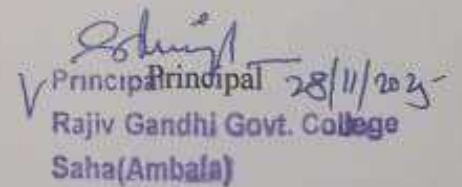 Principal Principal 28/11/2025
Rajiv Gandhi Govt. College
Saha(Ambala)